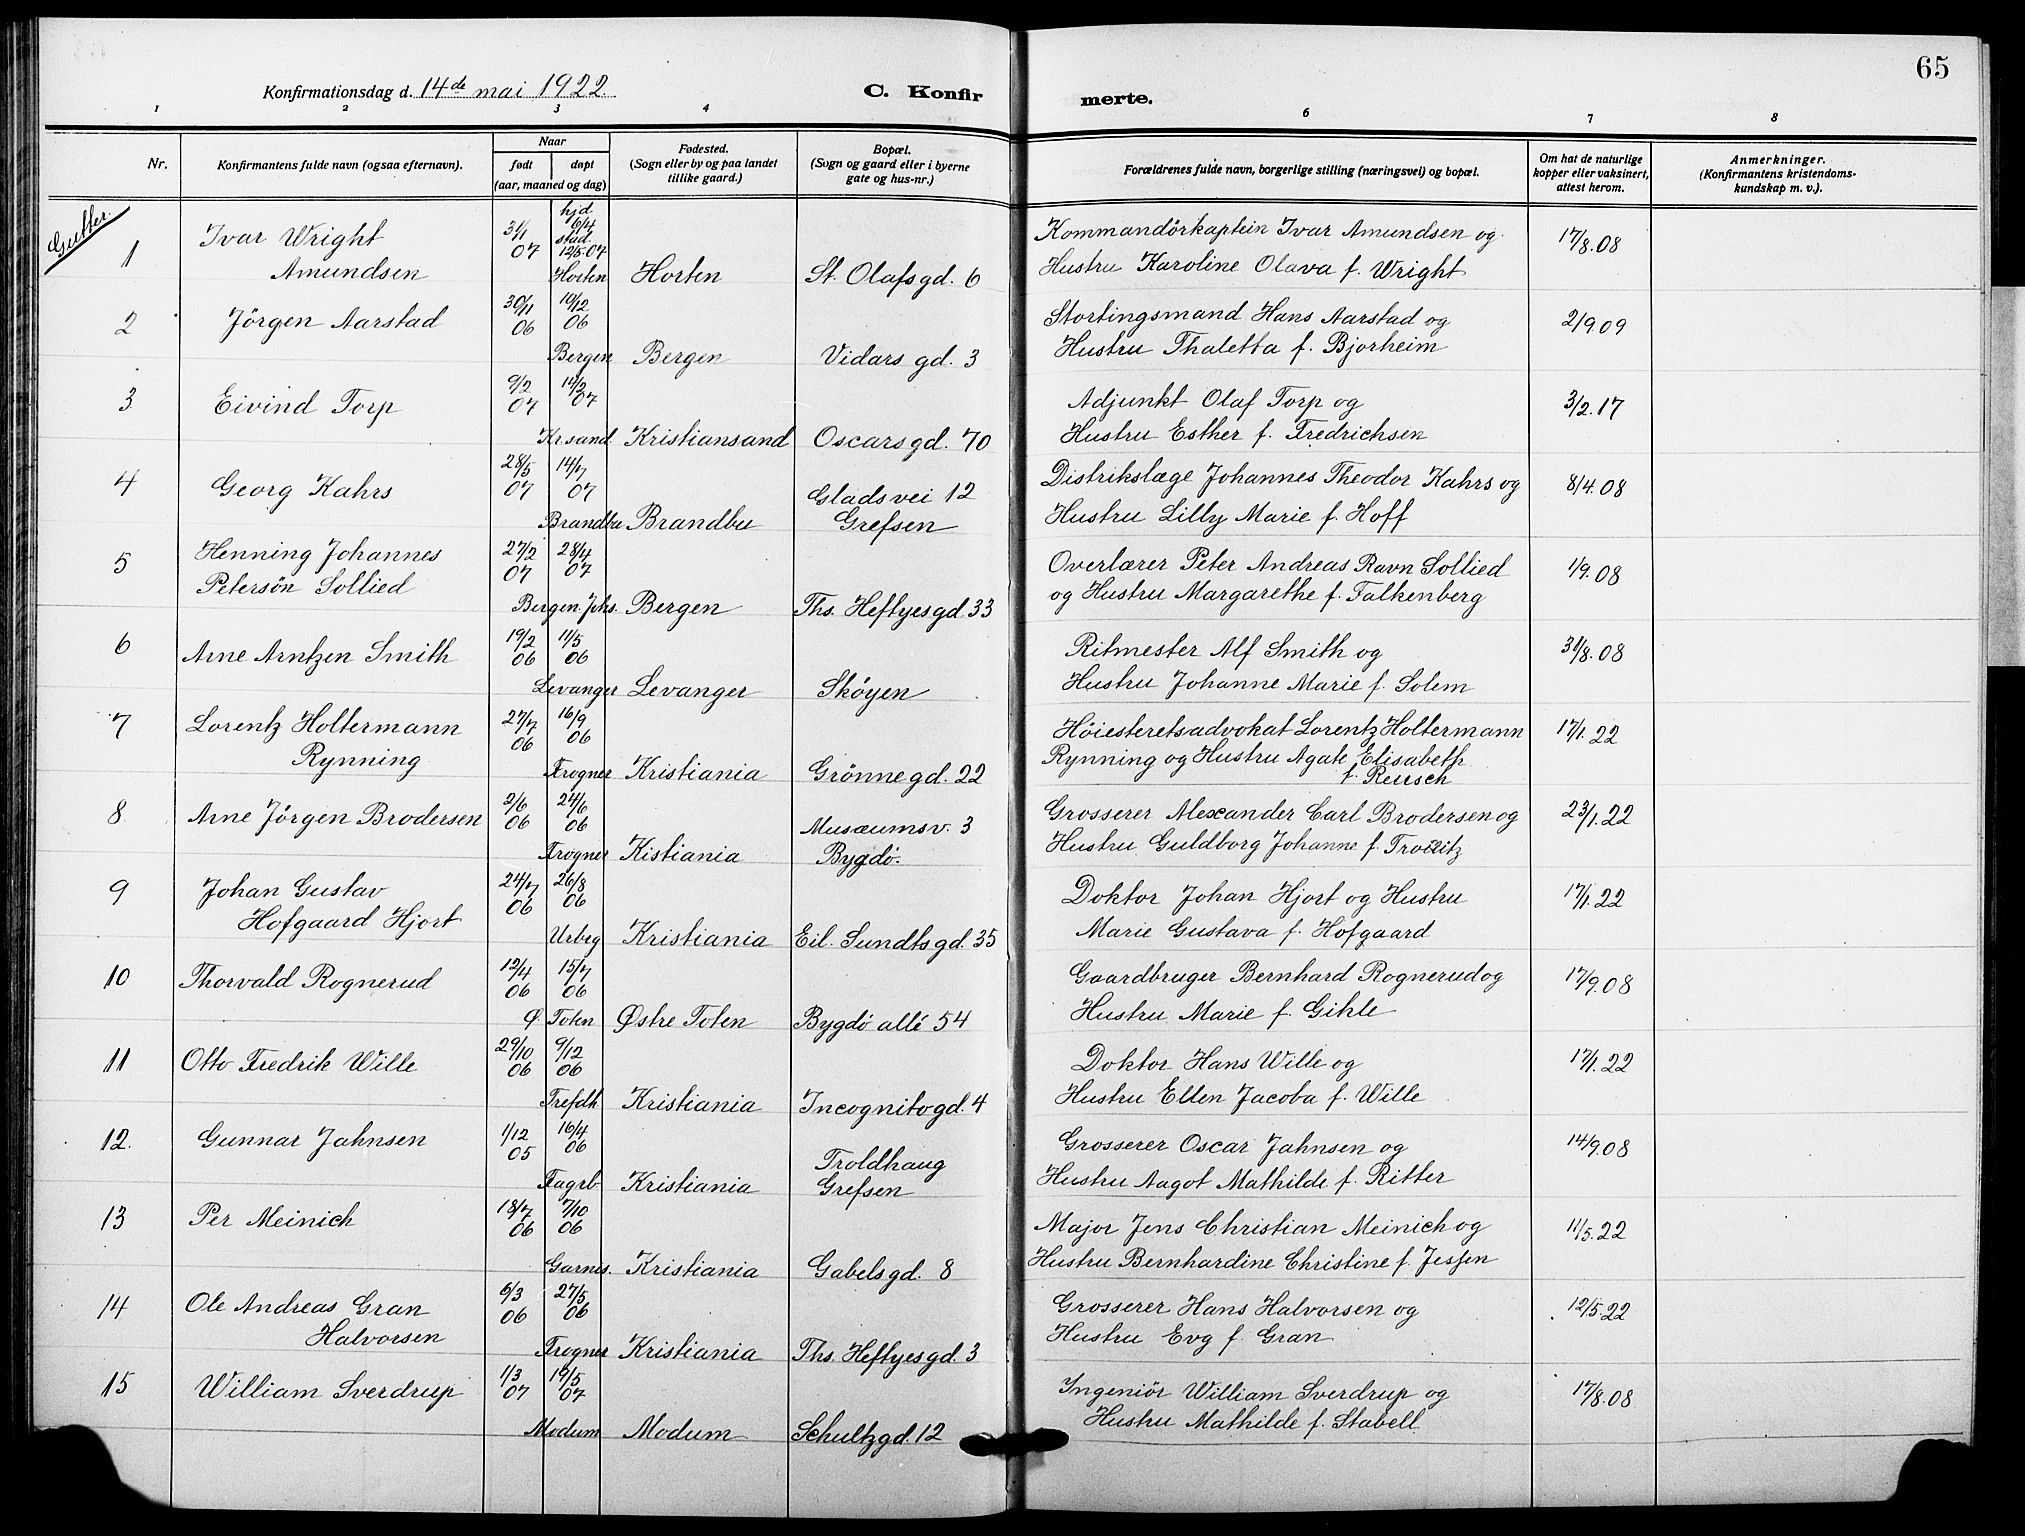 65
Konfirmationsdag d. 14de mai 1922. C. Konfirmerte.
1 2 3 4 5 6 7 8
Nr. Konfirmantens fulde navn (ogsaa efternavn). Naar født døpt (aar, maaned og dag) Fødested. (Sogn eller by og paa landet tillike gaard.) Bopæl. (Sogn og gaard eller i byerne gate og hus-nr.) Forældrenes fulde navn, borgerlige stilling (næringsvei) og bopæl. Om hat de naturlige kopper eller vaksinert, attest herom. Anmerkninger. (Konfirmantens kristendomskundskap m. v.).
Gutter.
1 Ivar Wright 3/1 07 hjd 6/4 stad. 12/5.07 Kommandörkaptein Ivar Amundsen og 17/8.08
Amundsen Horten Horten St. Olafs gd. 6 Hustru Karoline Olava f. Wright
2 Jörgen Aarstad 30/11 06 10/12 06 Stortingsmand Hans Aarstad og 2/9.09
Bergen Bergen Vidars gd. 3 Hustru Thaletta f. Bjorheim
3 Eivind Torp 9/2 07 14/2 07 Adjunkt Olaf Torp og 3/2.17
Kr.sand. Kristiansand Oscars gd. 70 Hustru Esther f. Fredrichsen
4 Georg Kahrs 28/5 07 14/7 07 Glads vei 12 Distrikslæge Johannes Theodor Kahrs og 8/4.08
Brandbu Brandbu Grefsen Hustru Lilly Marie f. Hoff
5 Henning Johannes 27/2 07 28/4 07 Overlærer Peter Andreas Ravn Sollied 1/9.08
Petersön Sollied Bergen Johs. Bergen Ths. Heftyes gd. 33 og Hustru Margarethe f. Falkenberg
6 Arne Arntzen Smith 19/2 06 11/5 06 Ritmester Alf Smith og 31/8.08
Levanger Levanger Sköyen Hustru Johanne Marie f. Solem
7 Lorentz Holtermann 27/7 06 16/9 06 Höiesteretsadvokat Lorentz Holtermann 17/1.22
Rynning Frogner Kristiania Grönne gd. 22 Rynning og Hustru Agate Elisabeth
f. Reusch
8 Arne Jörgen Brodersen 2/6 06 24/6 06 Musæumsv. 3 Grosserer Alexander Carl Brodersen og 23/1.22
Frogner Kistiania Bygdö. Hustru Guldborg Johanne f.
9 Johan Gustav 24/7 06 26/8 06 Doktor Johan Hjort og Hustru 17/1.22
Hofgaard Hjort Urbyg Kristiania Eil. Sundts gd. 35 Marie Gustava f. Hofgaard
10 Thorvald Rognerud 12/4 06 15/7 06 Gaardbruger Bernhard Rognerud og 17/9.08
Ø. Toten Østre Toten Bygdö allé 54 Hustru Marie f. Gihle
11 Otto Fredrik Wille 29/10 06 9/12 06 Doktor Hans Wille og 17/1.22
Trefdh Kristiania Incognito gd. 4 Hustru Ellen Jacoba f. Wille
12. Gunnar Jahnsen 1/12 05 16/4 06 Troldhaug Grosserer Oscar Jahnsen og 14/9.08
Fagrb Kristiania Grefsen Hustru Aagot Mathilde f. Ritter
13 Per Meinich 18/7 06 7/10 06 Major Jens Christian Meinich og 11/5.22
Garnes. Kristiania Gabels gd. 8 Hustru Bernhardine Christine f. Jessen
14 Ole Andreas Gran 6/3 06 27/5 06 Grosserer Hans Halvorsen og 12/5.22
Halvorsen Frogner Kristiania Ths. Heftyes gd. 3 Hustru Evg f. Gran
15 William Sverdrup 1/3 07 19/5 07 Ingeniör William Sverdrup og 17/8.08
Modum Modum Schultz gd. 12 Hustru Mathilde f. Stabell